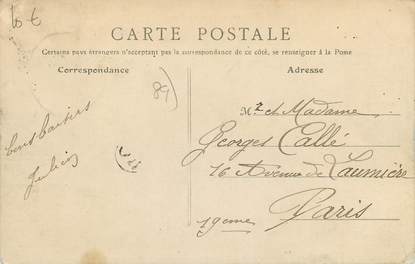 10 €
CARTE POSTALE
Certains pays étrangers n'acceptant pas la correspondance de ce côté, se renseigner à la Poste
Correspondance
Adresse
89
Mr et Madame
Georges Callé
16 Avenue de Laumière
Paris
19eme
Bons baisers